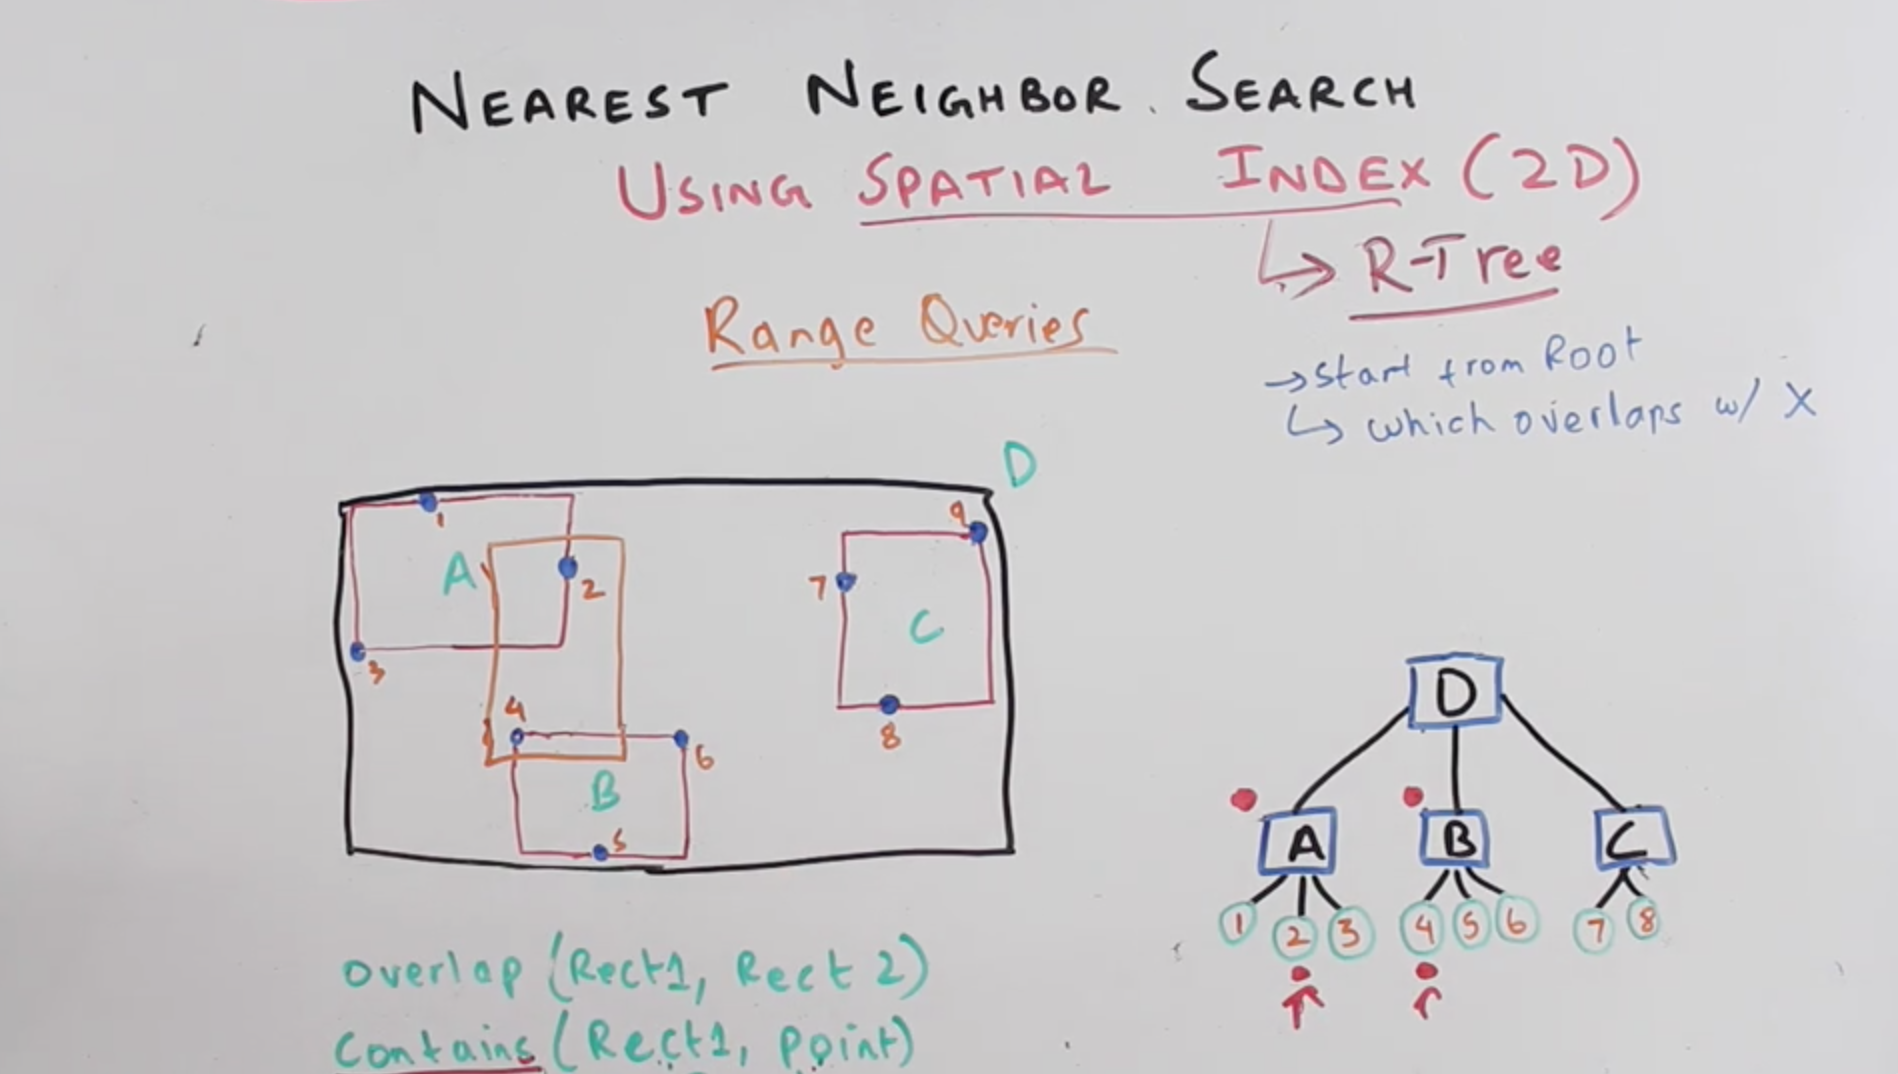 NEAREST NEIGHBOR. SEARCH
USING SPATIAL INDEX (2D)
↳ R-Tree
Range Queries
→ start from Root
↳ which overlaps w/ X
D
1
9
A
2
7
C
3
4
8
6
B
5
D
A B C
1 2 3 4 5 6 7 8
overlap (Rect1, Rect 2)
contains (Rect1, point)